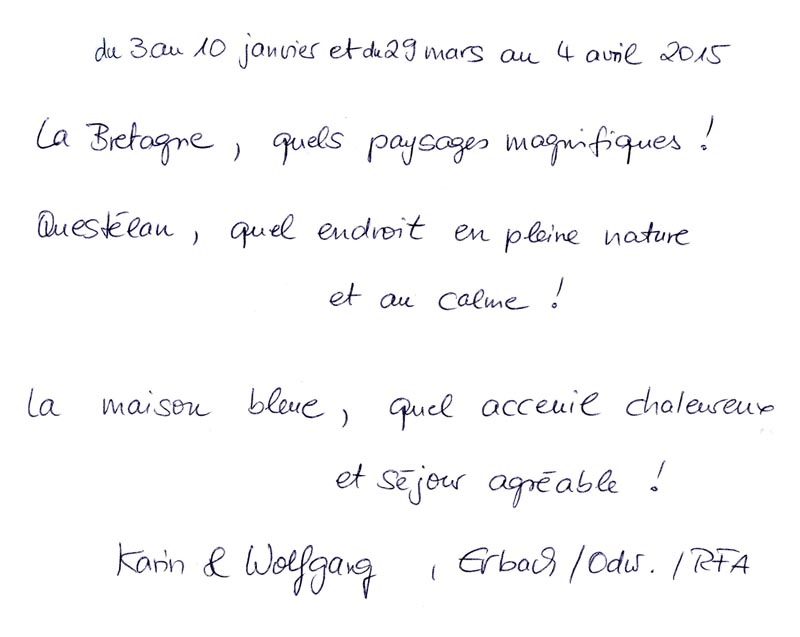 du 3 au 10 janvier et du 29 mars au 4 avril 2015
La Bretagne, quels paysages magnifiques !
Questélan, quel endroit en pleine nature
et au calme !
La maison bleue, quel acceuil chaleureux
et séjour agréable !
Karin & Wolfgang, Erbach/Odw./RFA